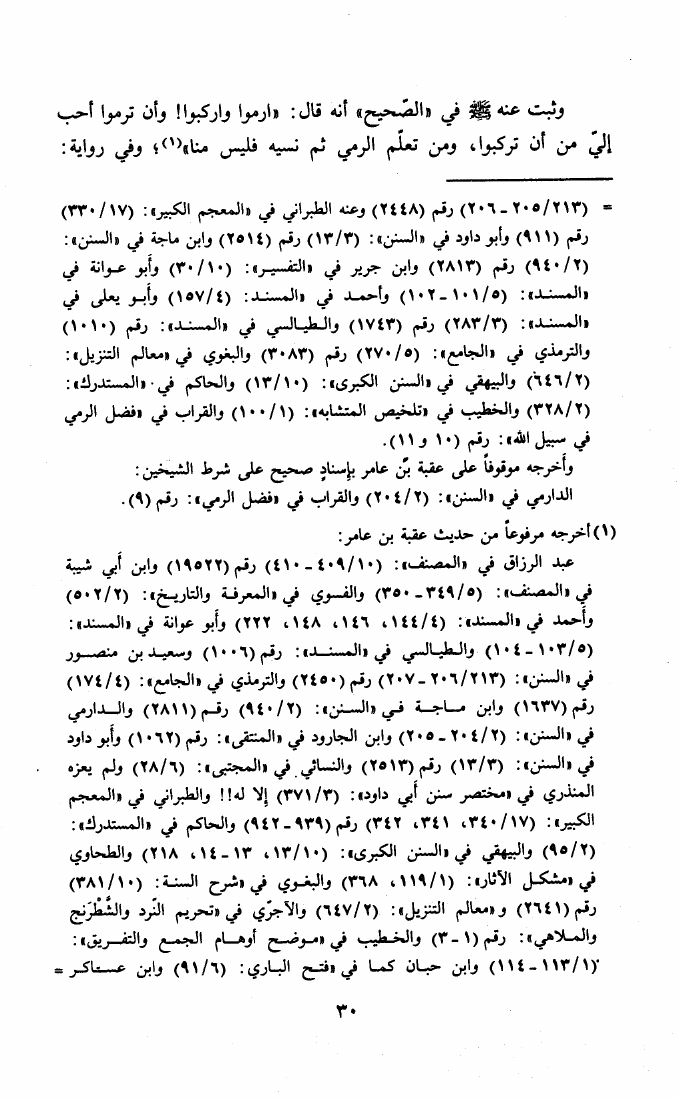 وثبت عنه ﷺ في «الصّحيح» أنه قال: «ارموا واركبوا! وأن ترموا أحب
إليّ من أن تركبوا، ومن تعلّم الرمي ثم نسيه فليس منا»(١)؛ وفي رواية:
= (٢٠٥/٢١٣ ـ ٢٠٦) رقم (٢٤٤٨) وعنه الطبراني في «المعجم الكبير»: (٣٣٠/١٧)
رقم (٩١١) وأبو داود في «السنن»: (١٣/٣) رقم (٢٥١٤) وابن ماجة في «السنن»:
(٩٤٠/٢) رقم (٢٨١٣) وابن جرير في «التفسير»: (٣٠/١٠) وأبو عوانة في
«المسند»: (١٠١/٥ ـ ١٠٢) وأحمد في «المسند: (١٥٧/٤) وأبو يعلى في
«المسند»: (٢٨٣/٣) رقم (١٧٤٣) والطيالسي في «المسند»: رقم (١٠١٠)
والترمذي في «الجامع»: (٢٧٠/٥) رقم (٣٠٨٣) والبغوي في «معالم التنزيل»:
(٦٤٦/٢) والبيهقي في «السنن الكبرى»: (١٣/١٠) والحاكم في «المستدرك»:
(٣٢٨/٢) والخطيب في «تلخيص المتشابه»: (١٠٠/١) والقراب في «فضل الرمي
في سبيل الله»: رقم (١٠ و ١١).
وأخرجه موقوفاً على عقبة بن عامر بإسنادٍ صحيح على شرط الشيخين:
الدارمي في «السنن»: (٢٠٤/٢) والقراب في «فضل الرمي»: رقم (٩).
(١) أخرجه مرفوعاً من حديث عقبة بن عامر:
عبد الرزاق في «المصنف»: (٤٠٩/١٠ ـ ٤١٠) رقم (١٩٥٢٢) وابن أبي شيبة
في «المصنف»: (٣٤٩/٥ ـ ٣٥٠) والفسوي في «المعرفة والتاريخ»: (٥٠٢/٢)
وأحمد في «المسند»: (١٤٤/٤، ١٤٦، ١٤٨، ٢٢٢) وأبو عوانة في «المسند»:
(١٠٣/٥ ـ ١٠٤) والطيالسي في «المسند»: رقم (١٠٠٦) وسعيد بن منصور
في «السنن»: (٢٠٦/٢١٣ ـ ٢٠٧) رقم (٢٤٥٠) والترمذي في «الجامع»: (١٧٤/٤)
رقم (١٦٣٧) وابن ماجة في «السنن»: (٩٤٠/٢) رقم (٢٨١١) والدارمي
في «السنن»: (٢٠٤/٢ ـ ٢٠٥) وابن الجارود في «المنتقى»: رقم (١٠٦٢) وأبو داود
في «السنن»: (١٣/٣) رقم (٢٥١٣) والنسائي في «المجتبى»: (٢٨/٦) ولم يعزه
المنذري في «مختصر سنن أبي داود»: (٣٧١/٣) إلا له!! والطبراني في «المعجم
الكبير»: (٣٤٠/١٧، ٣٤١، ٣٤٢) رقم (٩٣٩ ـ ٩٤٢) والحاكم في «المستدرك»:
(٩٥/٢) والبيهقي في «السنن الكبرى»: (١٣/١٠، ١٣ ـ ١٤، ٢١٨) والطحاوي
في «مشكل الآثار»: (١١٩/١، ٣٦٨) والبغوي في «شرح السنة: (٣٨١/١٠)
رقم (٢٦٤١) و «معالم التنزيل»: (٦٤٧/٢) والآجرّي في «تحريم النّرد والشَّطْرنج
والملاهي»: رقم (١ ـ ٣) والخطيب في «موضح أوهام الجمع والتفريق»:
(١١٣/١ ـ ١١٤) وابن حبان كما في «فتح الباري: (٩١/٦) وابن عساكر =
٣٠